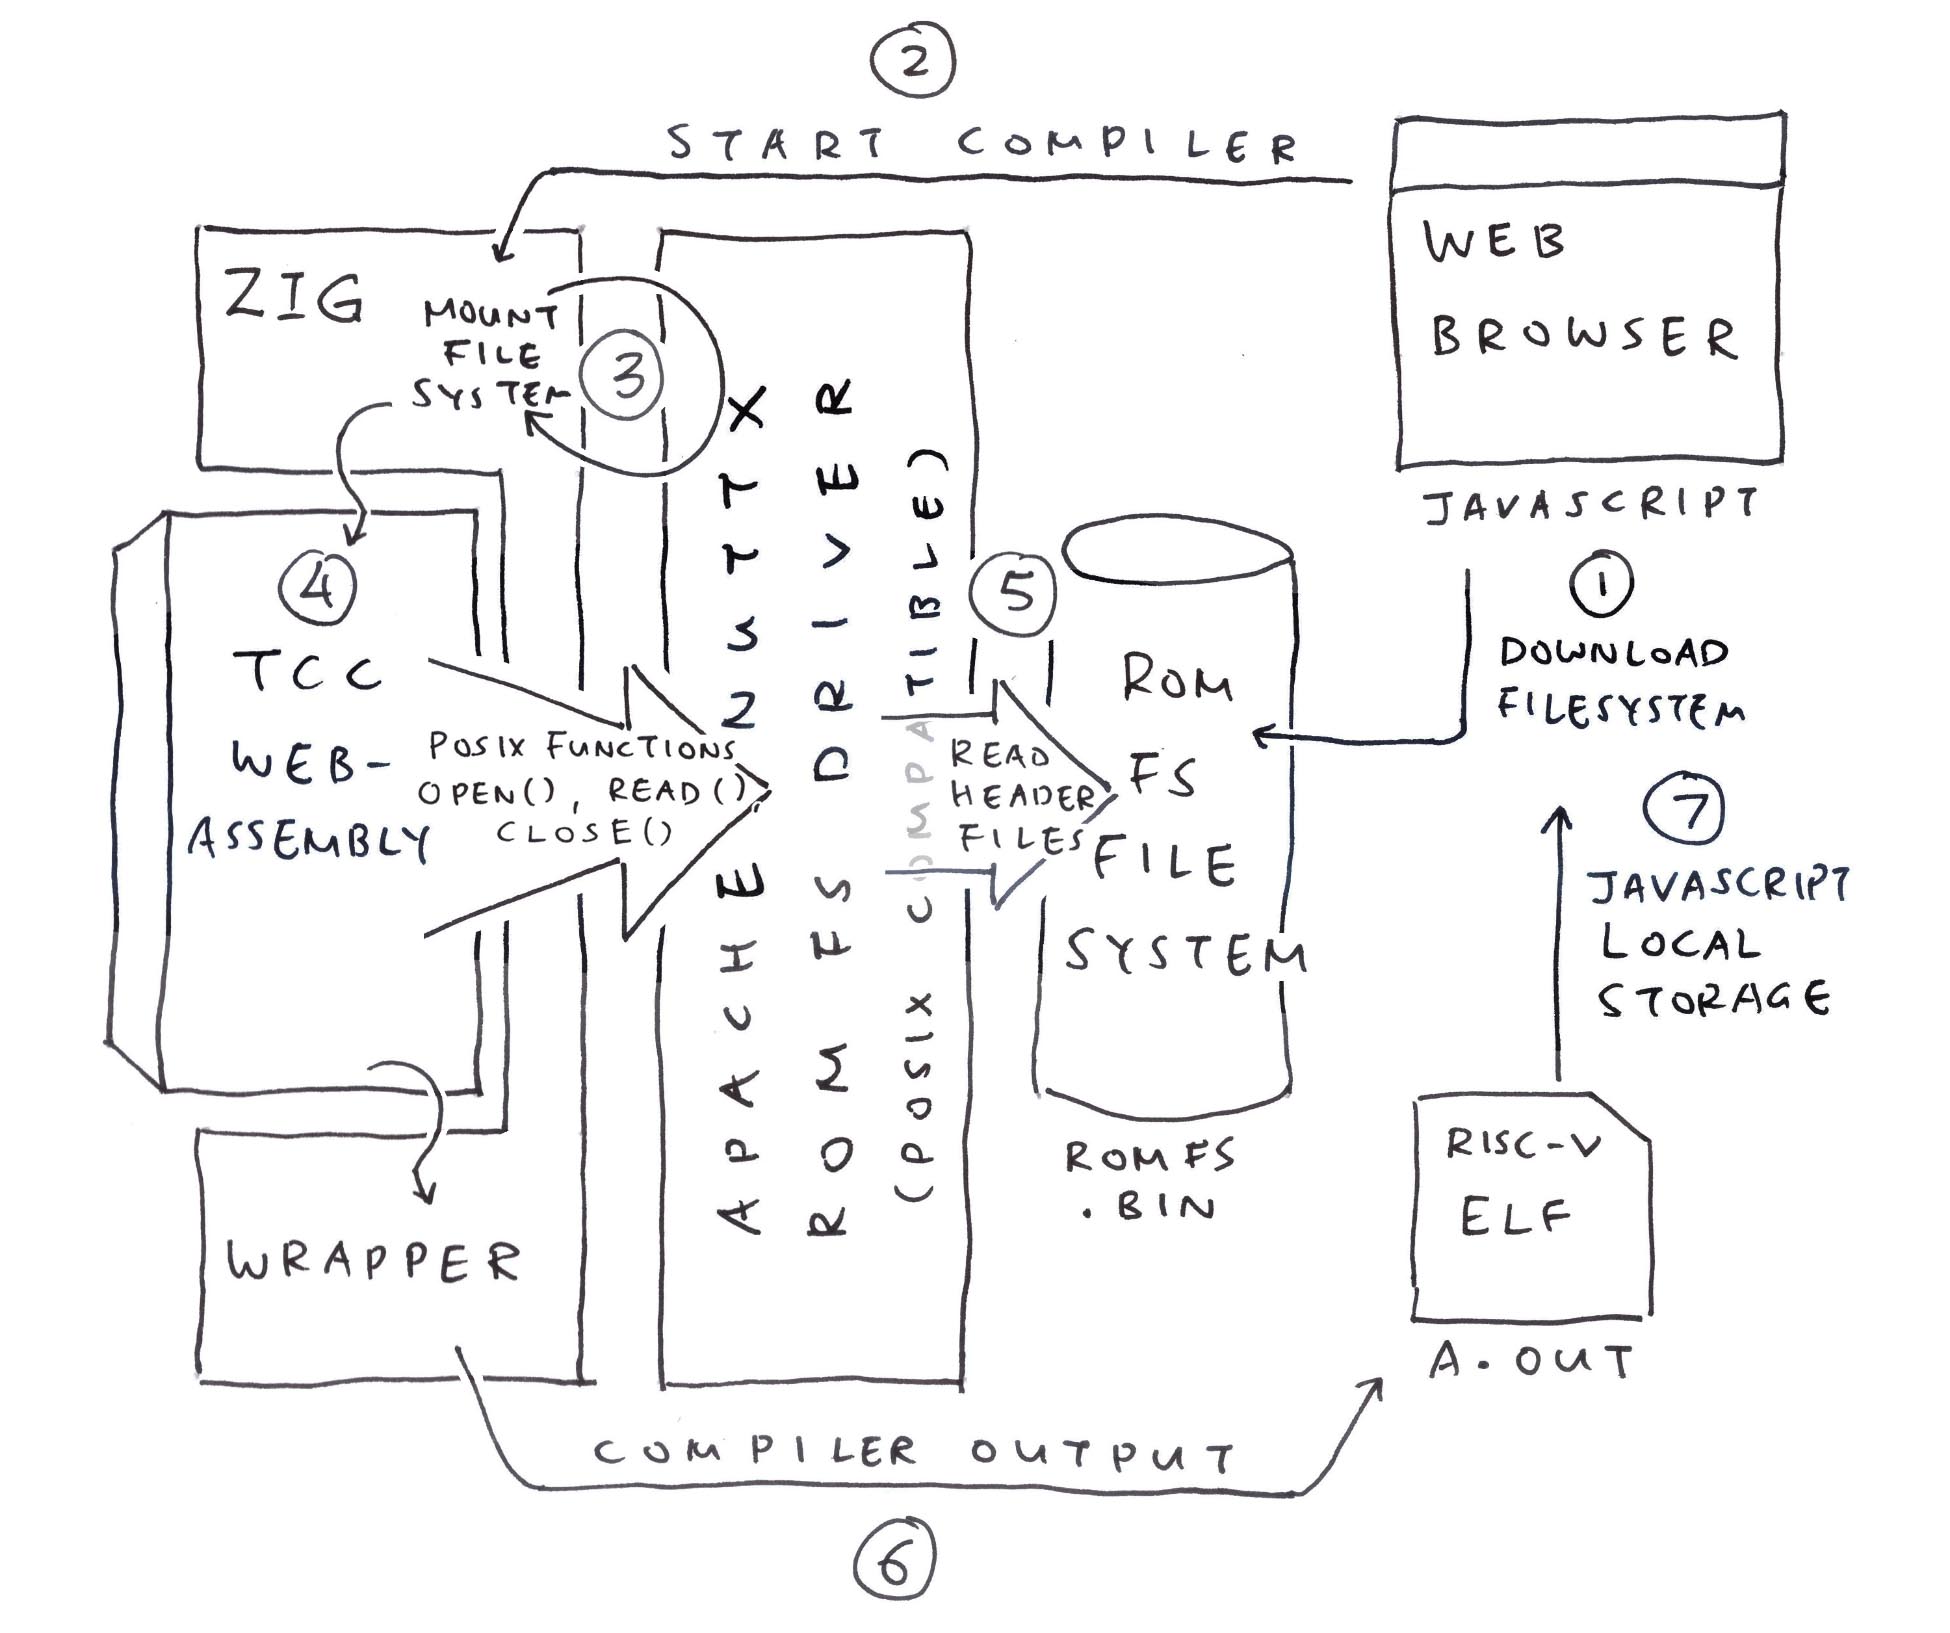 2
START COMPILER
WEB
BROWSER
JAVASCRIPT
1
DOWNLOAD
FILESYSTEM
ZIG
MOUNT
FILE
SYSTEM
3
4
TCC
WEB-
ASSEMBLY
POSIX FUNCTIONS
OPEN(), READ()
CLOSE()
WRAPPER
APACHE NUTTX
ROM FS DRIVER
(POSIX COMPATIBLE)
5
READ
HEADER
FILES
ROM
FS
FILE
SYSTEM
ROMFS
.BIN
7
JAVASCRIPT
LOCAL
STORAGE
RISC-V
ELF
A.OUT
COMPILER OUTPUT
6